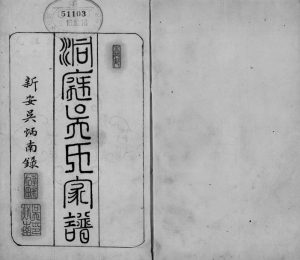 51103
洞庭吳氏家譜
新安吳炳南錄